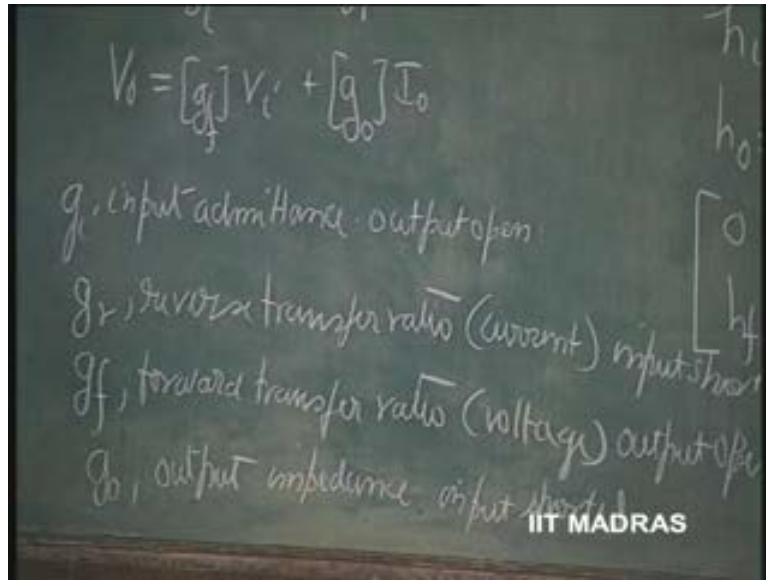 V₀ = [g_f] Vᵢ + [g₀] I₀
gᵢ, input admittance output open
g_r, reverse transfer ratio (current) input shor
g_f, forward transfer ratio (voltage) output ope
g₀, output impedance input shorted
hᵢ
h₀
0
h_f
IIT MADRAS